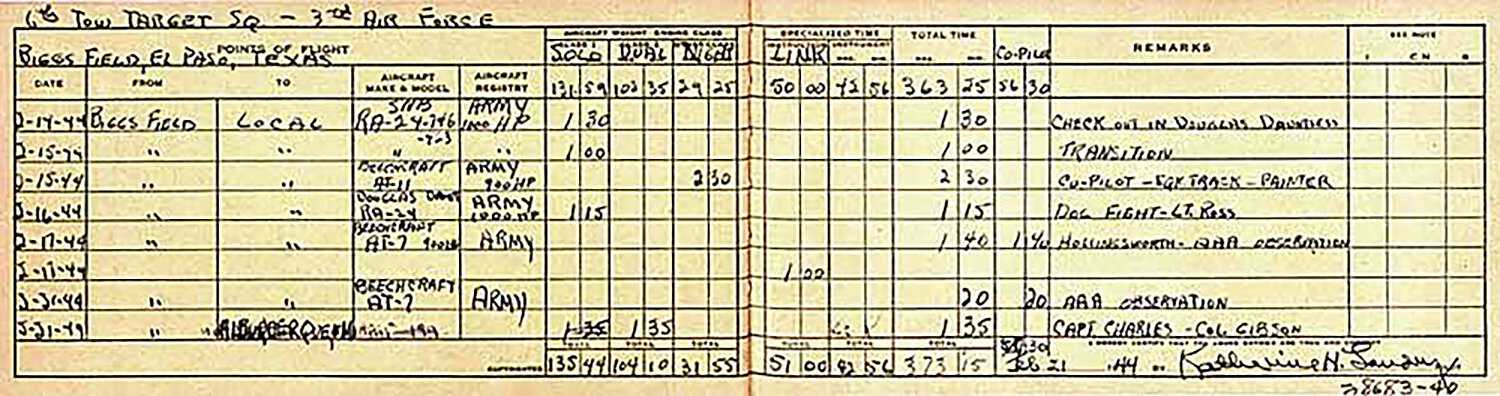 6th TOW TARGET SQ - 3rd AIR FORCE
AIRCRAFT WEIGHT ENGINE CLASS SPECIALIZED TIME TOTAL TIME SEE NOTE
BIGGS FIELD, EL PASO, TEXAS POINTS OF FLIGHT SOLO DUAL NIGHT LINK INSTRUMENT CO-PILOT REMARKS
DATE FROM TO AIRCRAFT MAKE & MODEL AIRCRAFT REGISTRY 131 59 102 35 29 25 50 00 42 56 363 25 56 30
2-14-44 BIGGS FIELD LOCAL RA-24-746 ARMY 1000 HP 1 30 1 30 CHECK OUT IN DOUGLAS DAUNTLESS
2-15-44 " " " " 1 00 1 00 TRANSITION
2-15-44 " " BEECHCRAFT AT-11 ARMY 900HP 2 30 2 30 CO-PILOT - TRACK - PAINTER
2-16-44 " " DOUGLAS DAUNT RA-24 ARMY 1000 HP 1 15 1 15 DOG FIGHT - LT. ROSS
2-17-44 " " BEECHCRAFT AT-7 ARMY 1 40 1 40 HOLLINGSWORTH - AAA OBSERVATION
2-17-44 1 00
" " BEECHCRAFT AT-7 ARMY 20 20 AAA OBSERVATION
" 1 35 1 35 1 35 CAPT CHARLES - COL GIBSON
TOTAL TOTAL TOTAL TOTAL TOTAL TOTAL
135 44 104 10 31 55 51 00 42 56 373 15 Feb 21 44 Katherine H.
28683-40